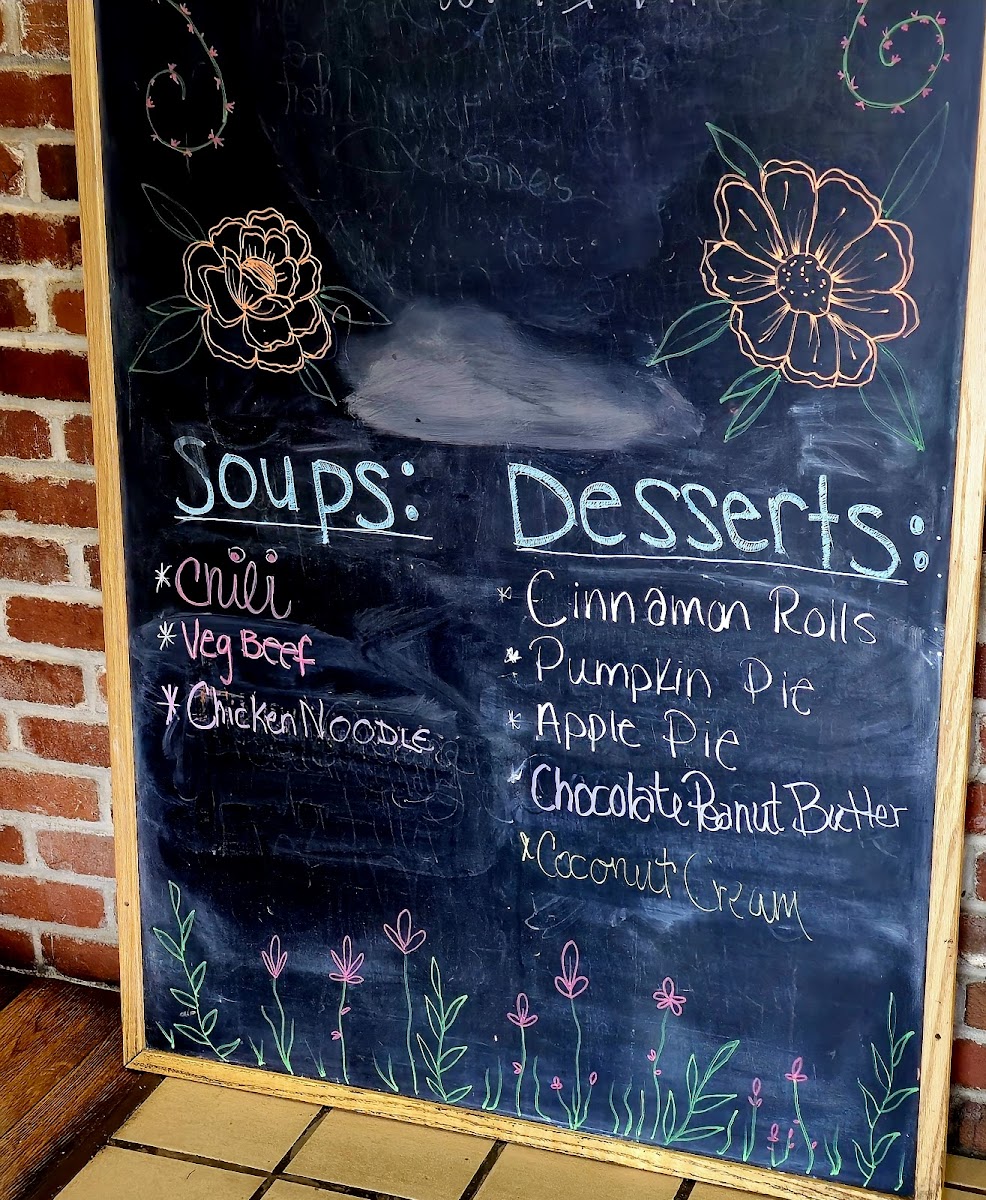 Soups:
*Chili
*Veg Beef
*Chicken Noodle
Desserts:
*Cinnamon Rolls
*Pumpkin Pie
*Apple Pie
*Chocolate Peanut Butter
*Coconut Cream